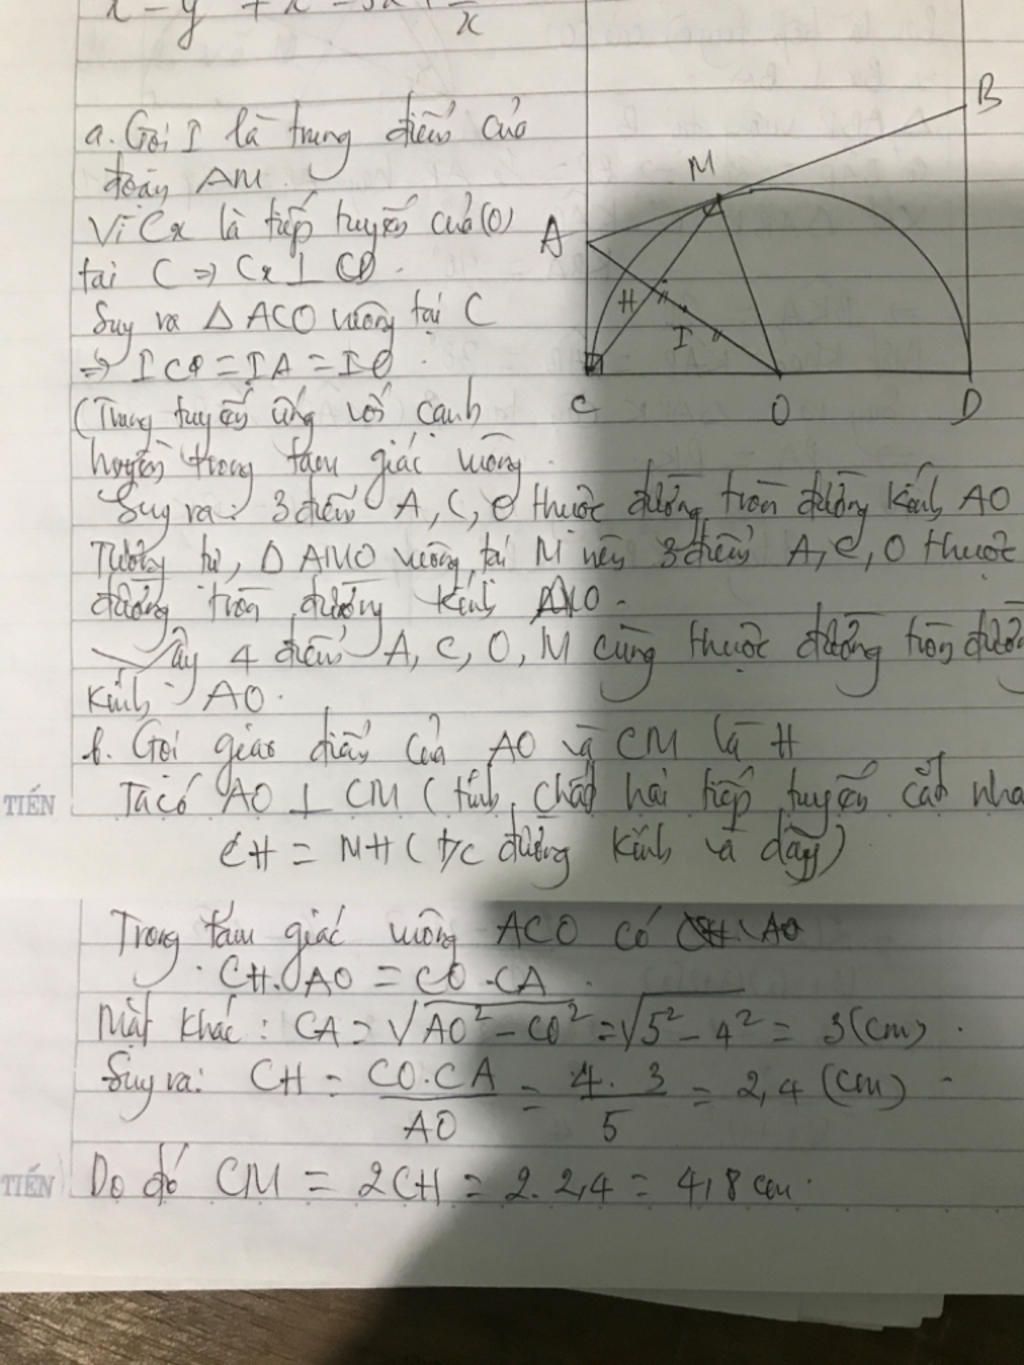 x - y + x
x
a. Gọi I là trung điểm của
đoạn AM.
Vì Cx là tiếp tuyến của (O)
tại C ⇒ Cx ⊥ CO.
Suy ra Δ ACO vuông tại C
⇒ IC = IA = IO.
(Trung tuyến ứng với cạnh
huyền trong tam giác vuông.
Suy ra: 3 điểm A, C, O thuộc đường tròn đường kính AO
Tương tự, Δ AMO vuông tại M nên 3 điểm A, C, O thuộc
đường tròn đường kính AO.
Vậy 4 điểm A, C, O, M cùng thuộc đường tròn đường
kính AO.
b. Gọi giao điểm của AO và CM là H
TIẾN
Ta có AO ⊥ CM (tính chất hai tiếp tuyến cắt nha
CH = MH (t/c đường kính và dây)
Trong tam giác vuông ACO có
CH.AO = CO.CA.
Mặt khác: CA = √AO² - CO² = √5² - 4² = 3 (cm).
Suy ra: CH = CO.CA / AO = 4.3 / 5 = 2,4 (cm)
TIẾN
Do đó CM = 2CH = 2.2,4 = 4,8 cm.
B
M
A
H
I
C
O
D